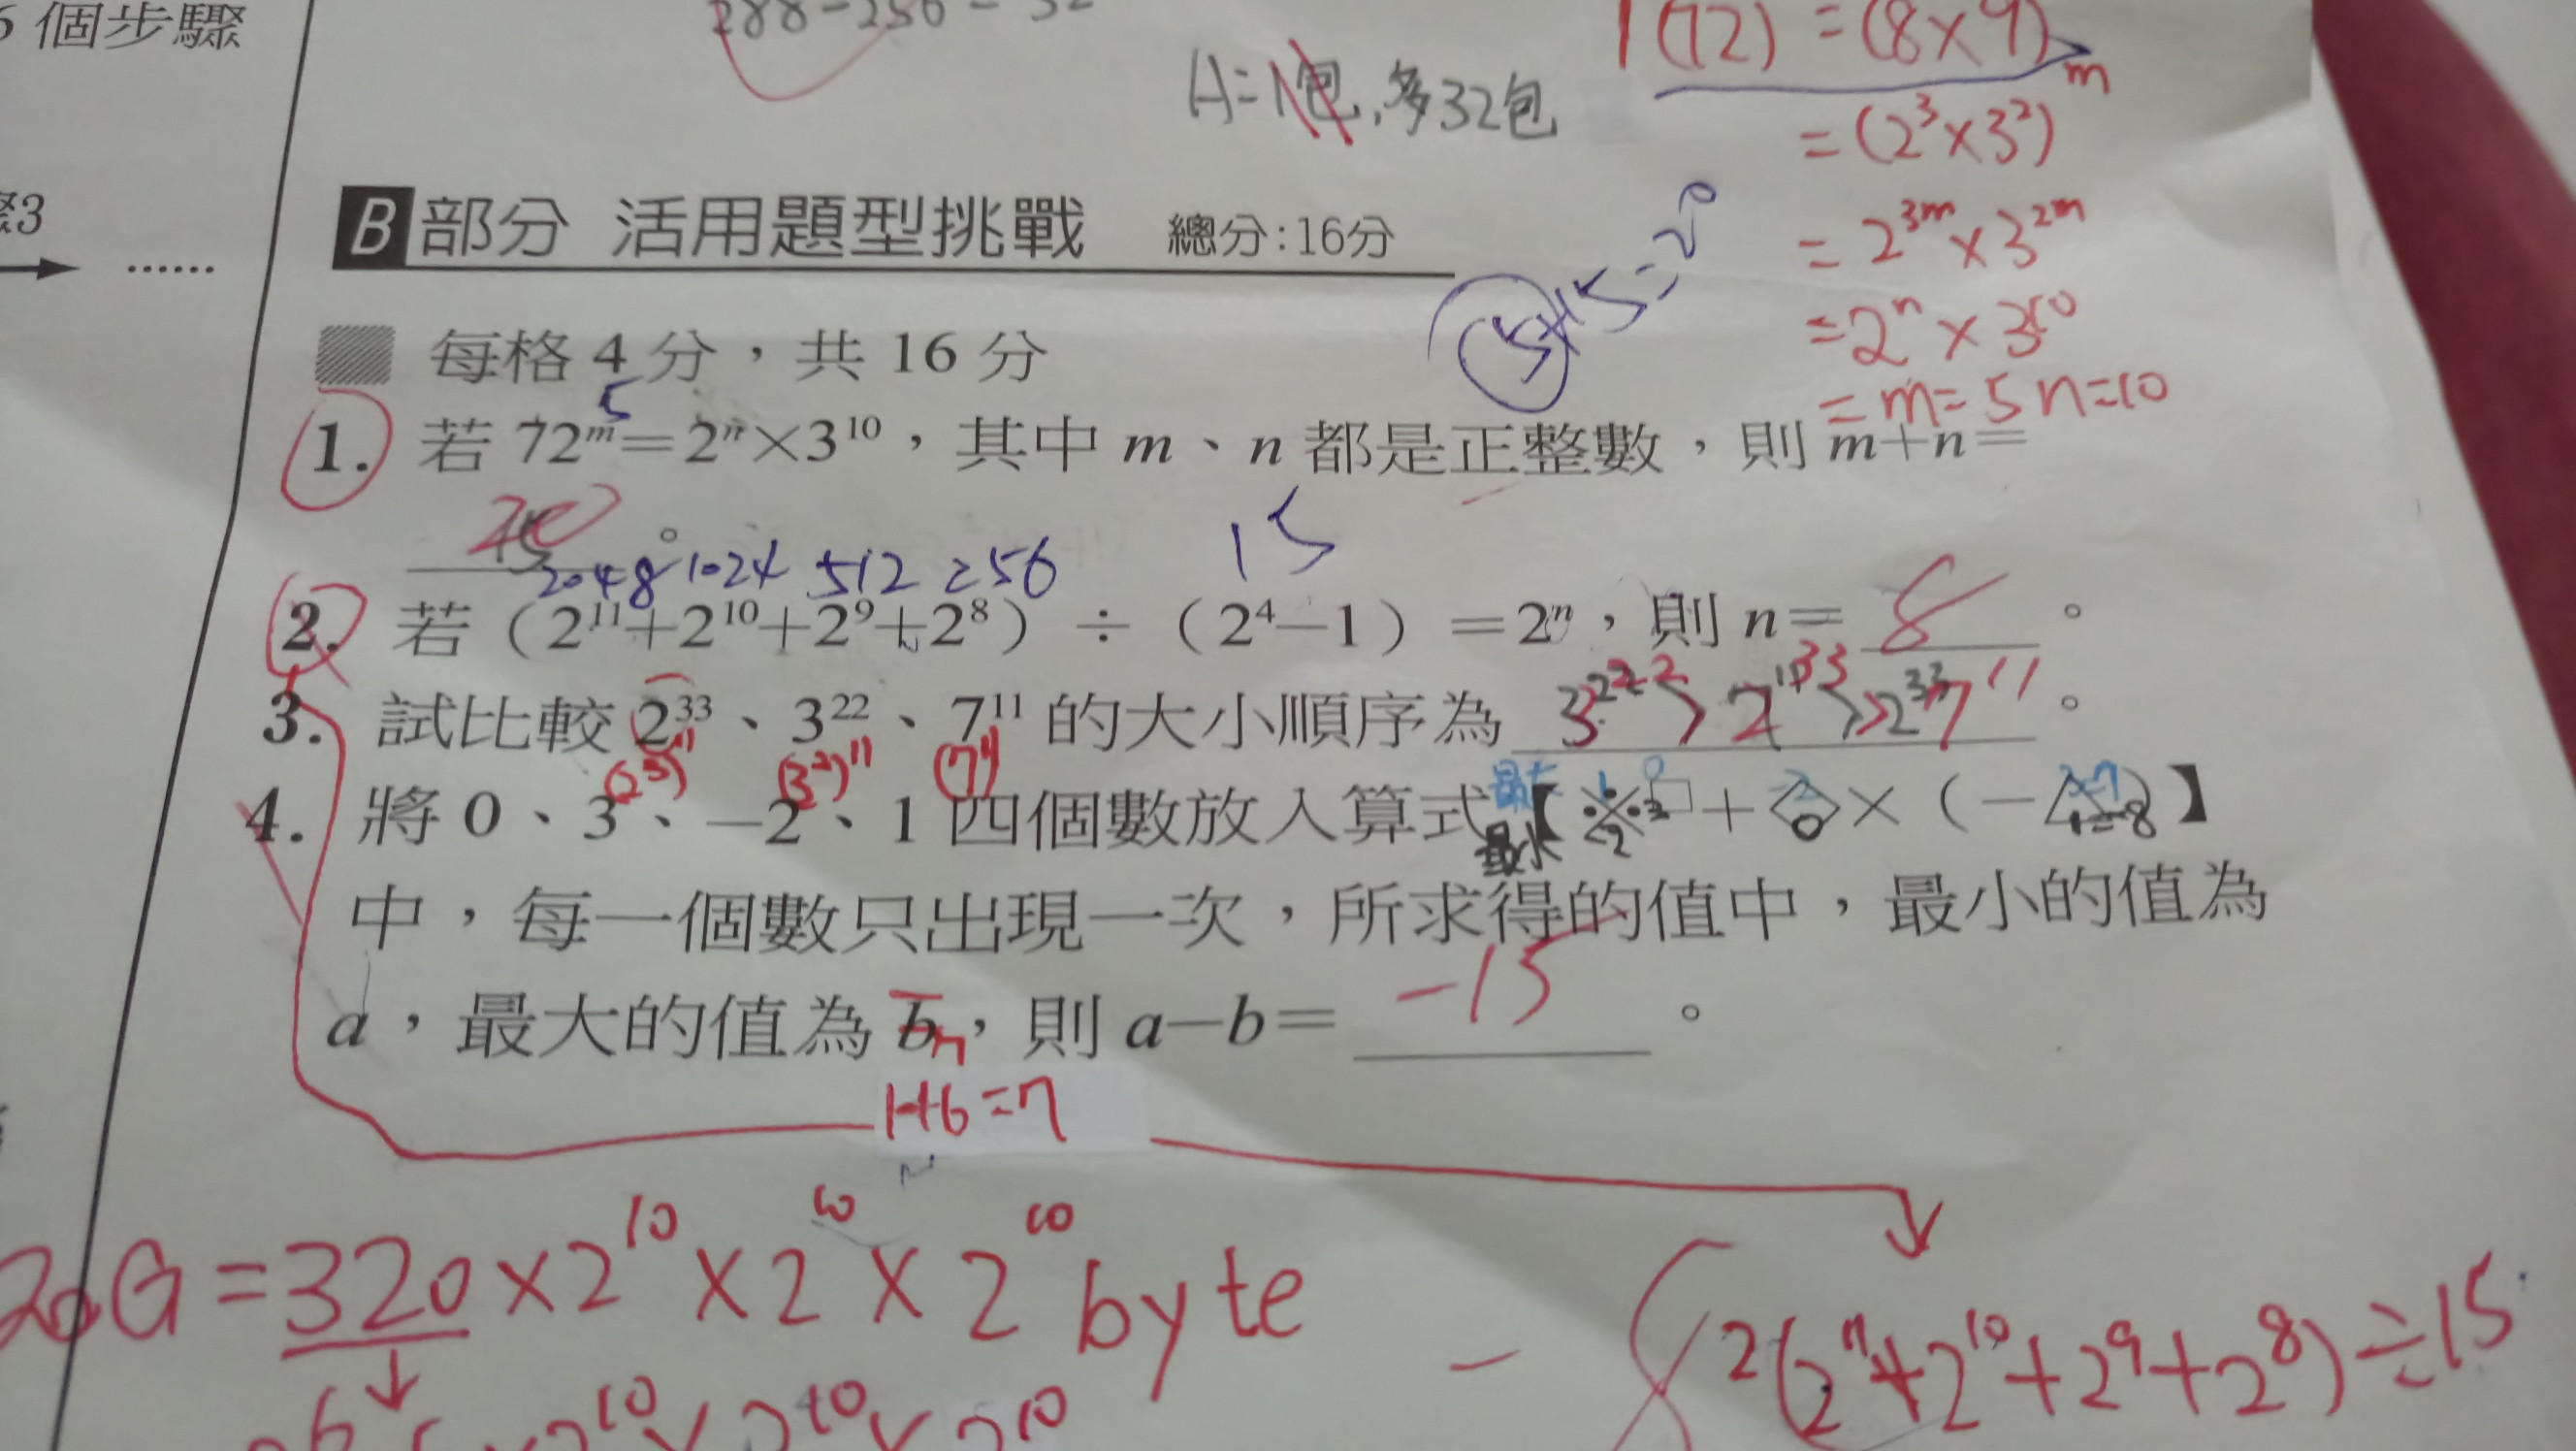 6 個步驟
288-256=32
A=1包,多32包
(72) = (8×9)m
= (2³×3²)
= 2³ᵐ×3²ᵐ
= 2ⁿ×3¹⁰
= m=5 n=10
驟3
→ ……
B 部分 活用題型挑戰 總分:16分
5+15=20
每格 4 分,共 16 分
5
1. 若 72ᵐ=2ⁿ×3¹⁰,其中 m、n 都是正整數,則 m+n=
20。
2048 1024 512 256 15
2. 若(2¹¹+2¹⁰+2⁹+2⁸)÷(2⁴-1)=2ⁿ,則 n= 8 。
3. 試比較 2³³、3²²、7¹¹ 的大小順序為 3²²>2³³>7¹¹。
(2³)¹¹ (3²)¹¹ (7)¹¹
4. 將 0、3、-2、1 四個數放入算式【※÷□+◇×(-△)】
最大 1 0 -2
最小 -2 0 1=-8
中,每一個數只出現一次,所求得的值中,最小的值為
a,最大的值為 b,則 a-b= -15 。
7
1+6=7
20G=320×2¹⁰×2¹⁰×2¹⁰byte
2(2¹¹+2¹⁰+2⁹+2⁸)÷15